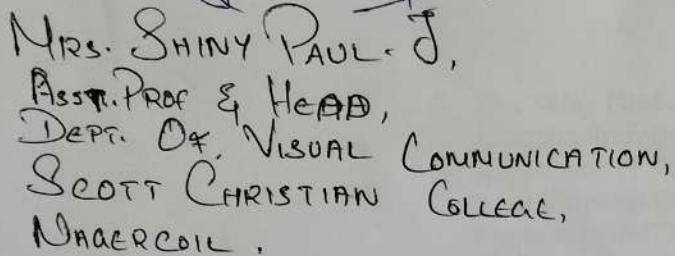 MRS. SHINY PAUL. J,
ASST. PROF & HEAD,
DEPT. OF. VISUAL COMMUNICATION,
SCOTT CHRISTIAN COLLEGE,
NAGERCOIL.